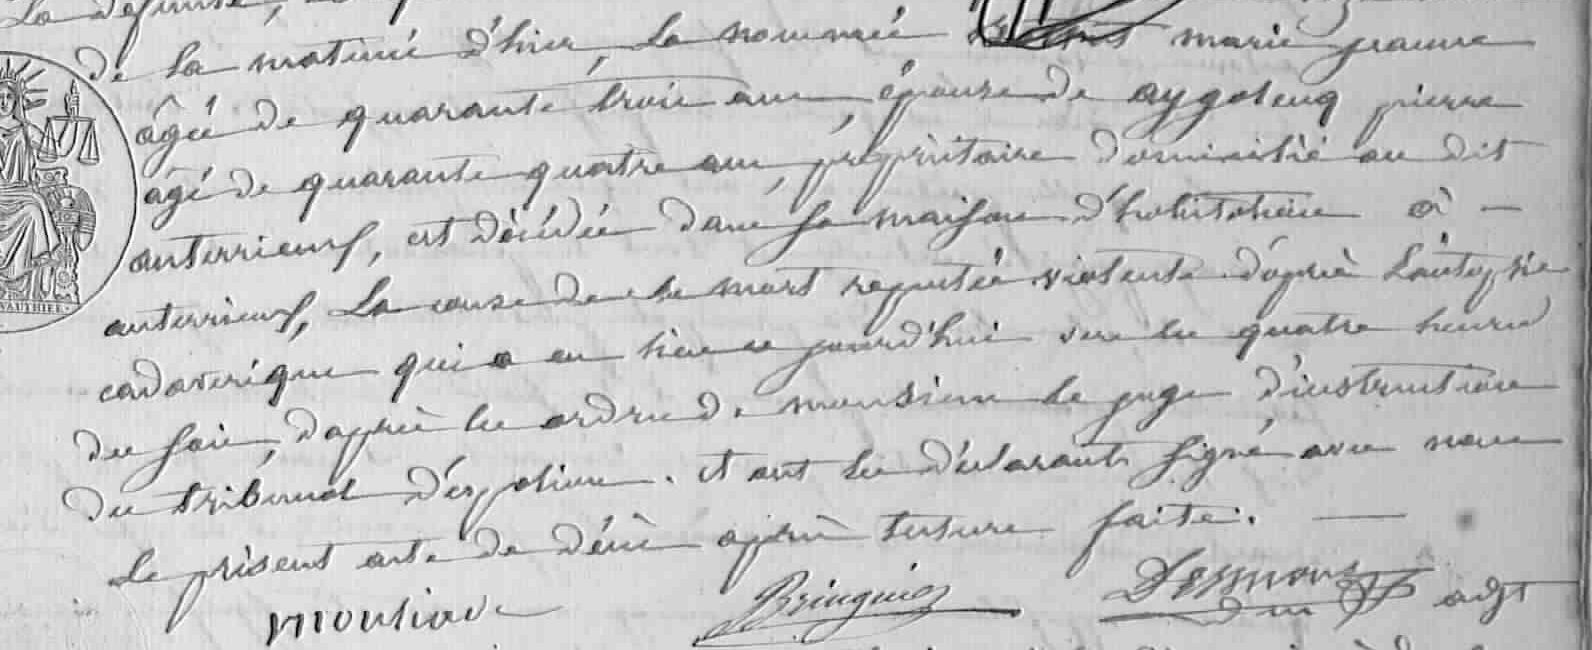 la défunte,
de la matiné d'hier, la nommée marie jeanne
âgée de quarante trois ans, épouse de aygolenq pierre
âgé de quarante quatre ans, propriètaire domicilié au dit
auterrieus, est décédée dans sa maison d'habitation à —
auterrieus, La cause de la mort reputée violente d'après L'autopsie
cadaverique qui a eu lieu ce jourd'hui vers les quatre heures
du soir, d'après les ordres de monsieur le juge d'instruction
du tribunal d'espalion. et ont les déclarants signé avec nous
le présent acte de décès après lecture faite. —
mouliade Bringuier adjt
VAUTHIER